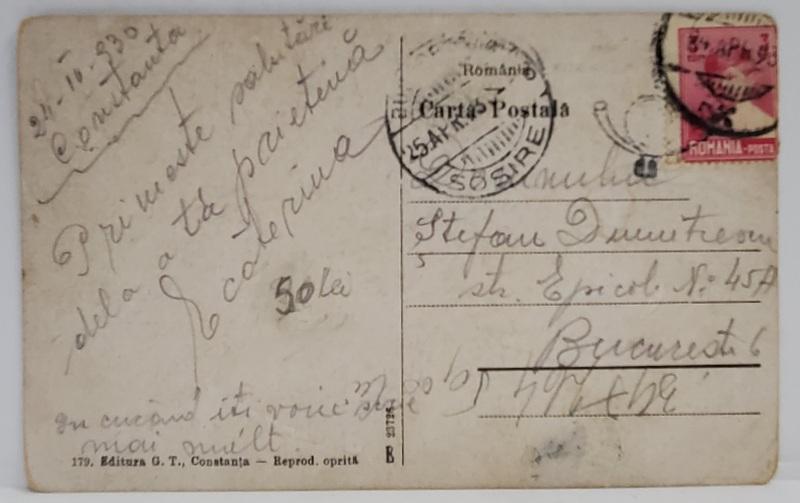 24-IV-930
Constanta
Primeste salutări
dela a ta prietenă
Ecaterina
50 lei
In curând iti voiu
mai mult.
179. Editura G. T., Constanţa — Reprod. oprită
B 23726
România
Carta Postală
25 APR.
SOSIRE
24 APR 93
ROMANIA-POSTA
Ştefan Dumitrescu
str. Episcob No 45A
Bucuresti 6